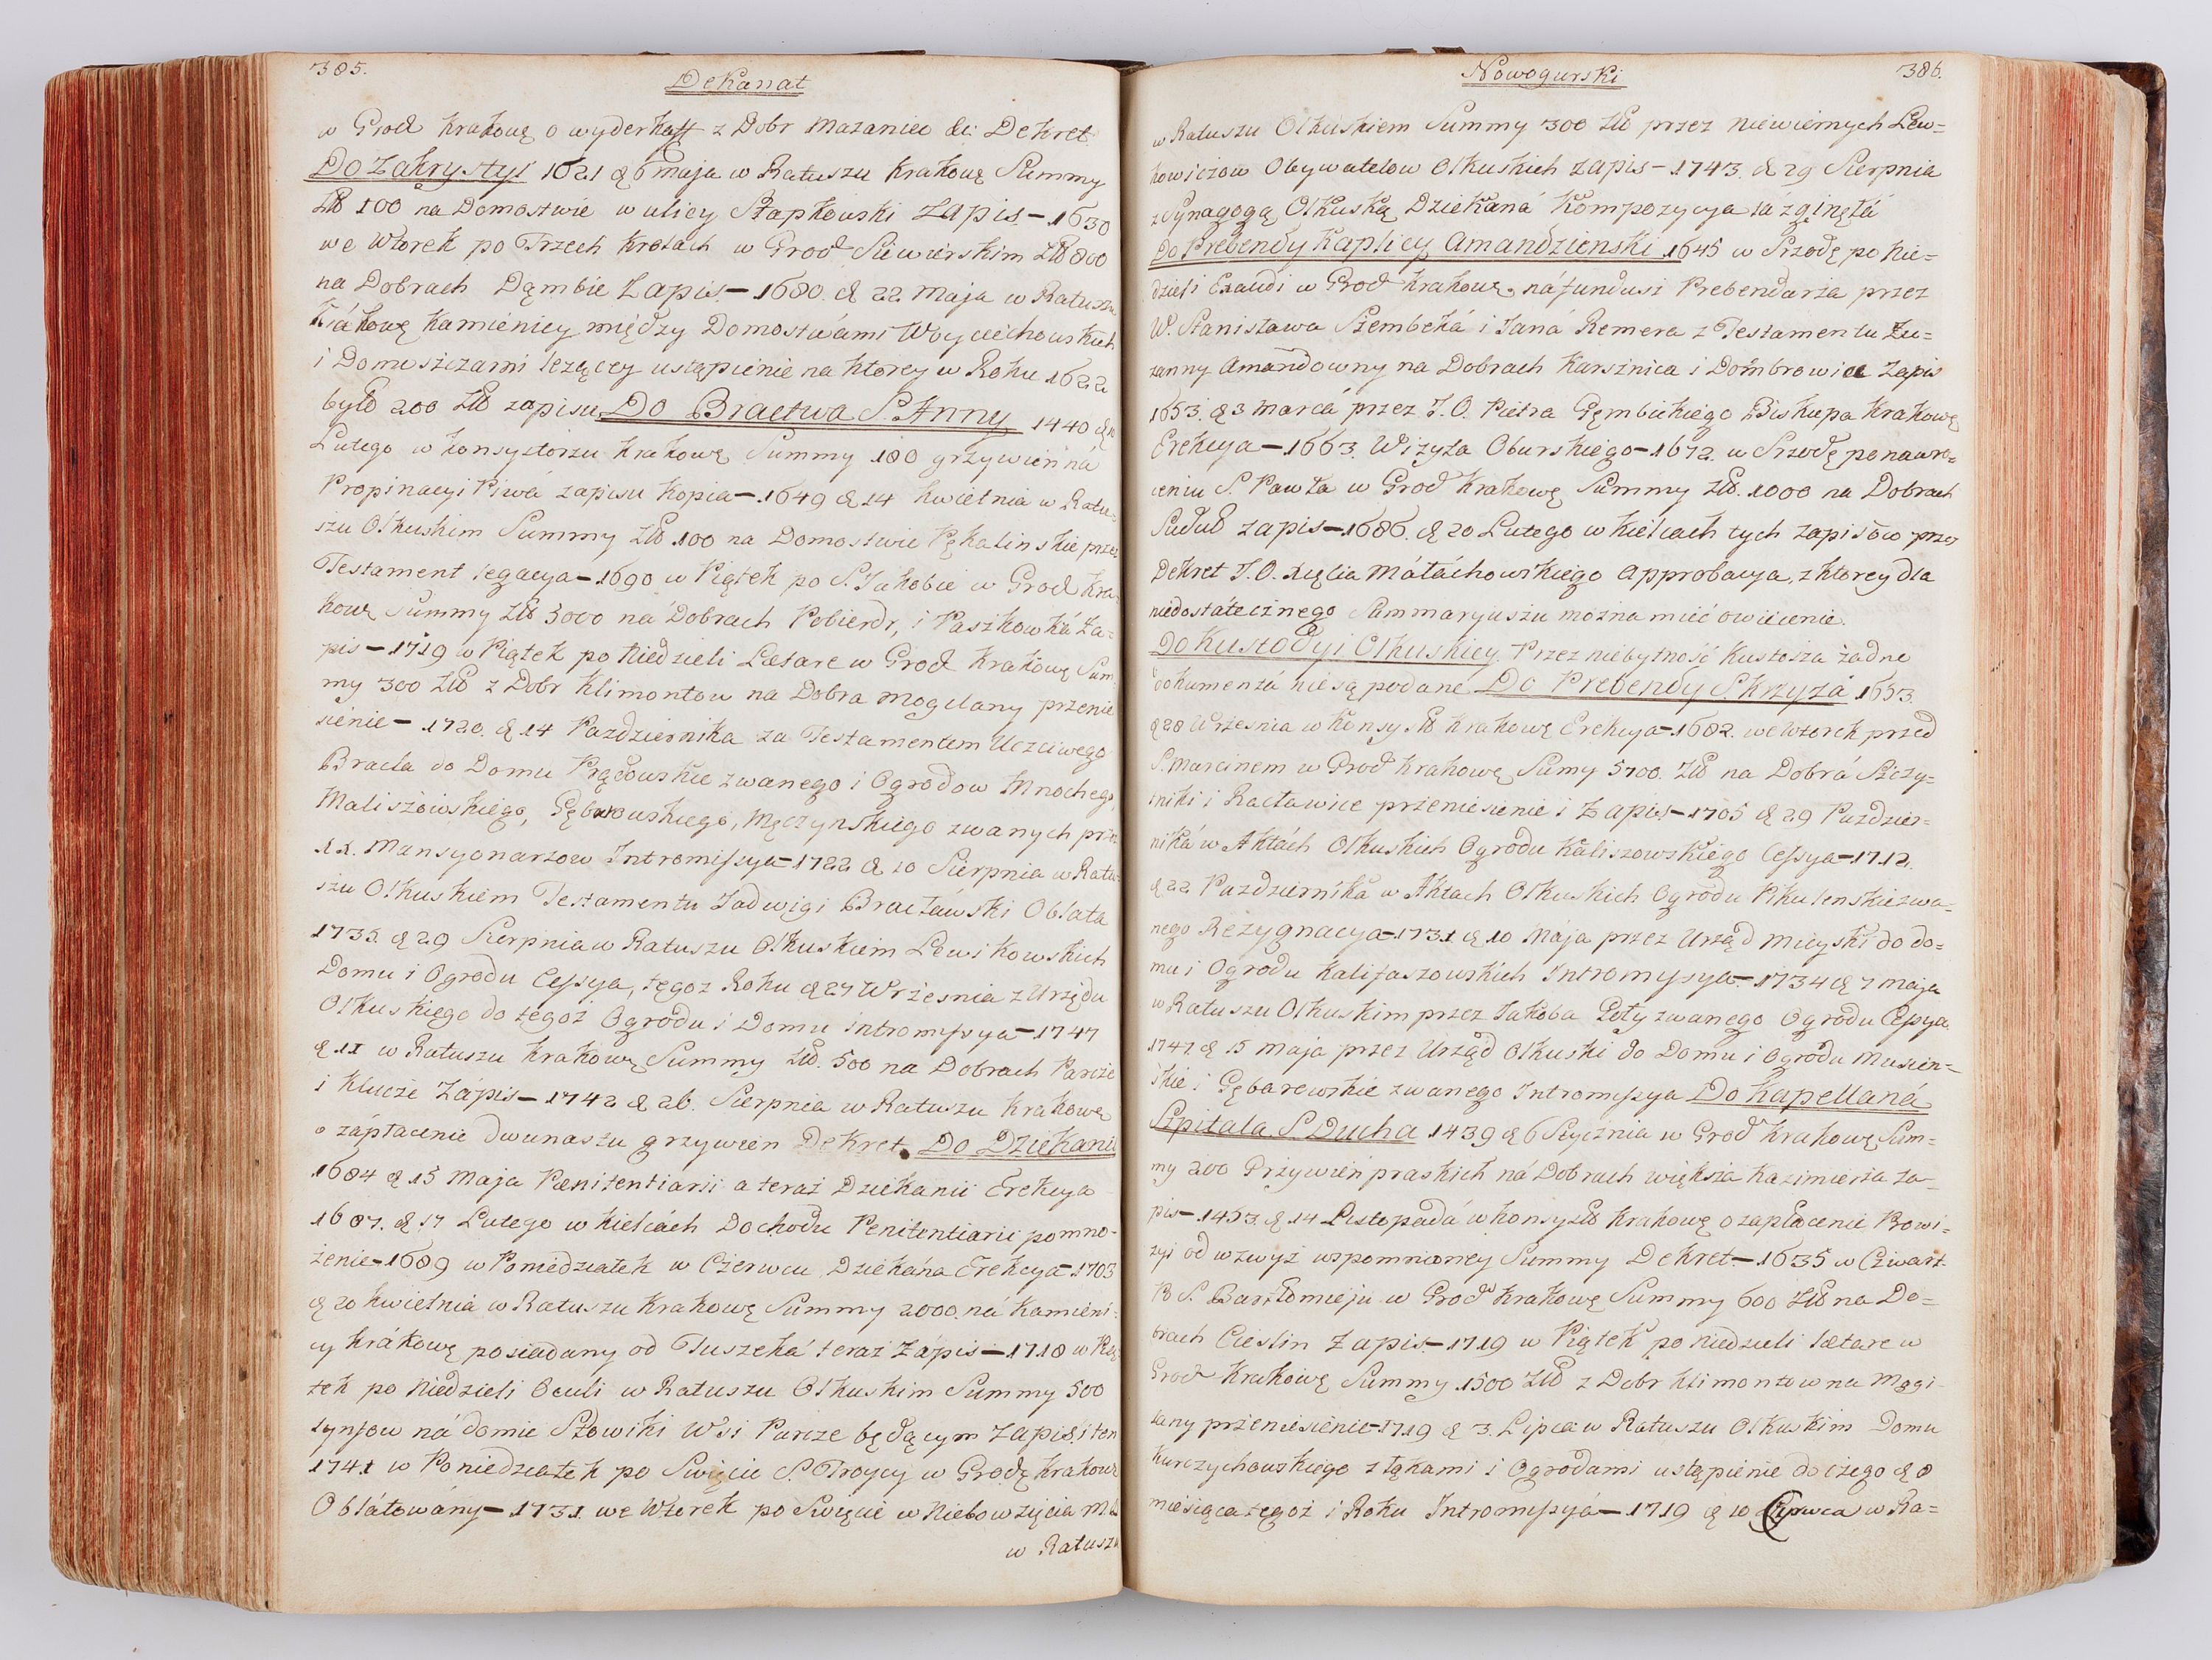 385.
Dekanat
w Grod Krakowę o wyderkaff z Dobr Mazaniec &c: Dekret
Do Zakrystyi 1621 d. 6 maja w Ratuszu Krakowę Summy
Zło 100 na Domostwie w ulicy Słapkowski Zapis – 1630
we Wtorek po Trzech Krolach w Grod Siewierskim Zło 800
na Dobrach Dąmbie Zapis – 1680. d. 22 Maja w Ratuszu
Krákowę Kamienicy między Domostwámi Woyciechowskich
i Domoszczami lezącey ustąpienie na ktorey w Roku 1622
było 200 Zło zapisu Do Bractwa S. Anny 1440 d.
Lutego w Konsystorzu Krakowę Summy 180 grzywien ná
Propinacyi Piwá zapisu Kopia – 1649 d. 14 Kwietnia w Ratu-
szu Olkuskim Summy Zło 100 na Domostwie Pękalinskie przez
Testament legacya – 1690 w Piątek po S. Jakobie w Grod Kra-
kowę Summy Zło 3000 na Dobrach Pobiedr, i Paszkowká Za-
pis – 1719 w Piątek po Niedzieli Lætare w Grod Krakowę Sum-
my 300 Zło z Dobr Klimontow na Dobra Mogilany przenie
sienie – 1720. d. 14 Pazdziernika za Testamentem Uczciwego
Bracla do Domu Prądowskie zwanego i Ogrodow Mnochego,
Maliszowskiego, Gębarowskiego, Męczynskiego zwanych przez
XX. Mansyonarzow Intromissya – 1722 d. 10 Sierpnia w Ratu-
szu Olkuskiem Testamentu Jadwigi Bracławski Oblata
1735. d. 29 Sierpnia w Ratuszu Olkuskiem Lewikowskich
Domu i Ogrodu Cessya, tęgoz Roku d. 27 Wrzesnia z Urzędu
Olkuskięgo do tęgoż Ogrodu i Domu intromissya – 1747
d. 11 w Ratuszu Krakowę Summy Zło. 500 na Dobrach Parcze
i Klucze Zápis – 1742 d. 26. Sierpnia w Ratuszu Krakowę
o zápłacenie dwunastu grzywien Dekret. Do Dziekanii
1684 d. 15 Maja Pænitentiarii a teraz Dziekanii Erekcya
1687. d. 17 Lutego w Kielcách Dochodu Penitentiarii pomno-
żenie – 1689 w Poniedziałek w Czerwcu Dziekána Erekcya – 1703
d. 20 Kwietnia w Ratuszu Krakowę Summy 2000. ná Kamieni-
cy Krákowę posiadany od Tuszeká teraz Zápis – 1718 w Pią-
tek po Niedzieli Oculi w Ratuszu Olkuskim Summy 500
tynfow ná domie Słowiki Wsi Parcze będącym Zapis. i ten
1741 w Poniedziałek po Swięcie S. Troycy w Grodę Krakowę
Oblátowány – 1731. we Wtorek po Swięcie w Niebowzięcia M. B.
w Ratuszu
Nowogurski
386.
w Ratuszu Olkuskiem Summy 300 Zło przez niewiernych Lew-
kowiczow Obywatelow Olkuskich zapis – 1743. d. 29 Sierpnia
z Synagogą Olkuską Dziekaná Kompozycya ta zginęłá
Do Prebendy Kaplicy Amandzienski 1645 w Srzodę po Nie-
dzieli Exaudi w Grod Krakowę ná fundusz Prebendarza przez
W. Stanisława Szembeká i Janá Remera z Testamentu Zu-
zanny Amandowny na Dobrach Karsznica i Dombrowica Zapis
1653. d. 3 marca przez J. O. Piotra Gęmbickiego Biskupa Krakowę
Erekcya – 1663. Wizyta Oburskiego – 1672. w Srzodę po nawro-
ceniu S. Pawła w Grod Krakowę Summy Zło. 1000 na Dobrach
Suduł zapis – 1686. d. 20 Lutego w Kielcach tych zapisow przez
Dekret J. O. Xięcia Máłáchowskiego Approbacya, z ktorey dla
niedostátecznego Summaryuszu można mieć oswiecenie.
Do Kustodyi Olkuskiey. Przez niebytność Kustosza żadne
dokumentá nie są podane Do Prebendy S. Krzyzá 1653.
d. 28 Wrzesnia w Konsysto Krakowę Erekcya – 1682. we Wtorek przed
S. Marcinem w Grod Krakowę Sumy 5700. Zło na Dobrá Sczy-
tniki i Racławice przeniesienie i Zapis – 1705 d. 29 Pazdzier-
niká w Aktách Olkuskich Ogrodu Kaliszowskiego Cessya – 1712.
d. 22 Pazdziernika w Aktach Olkuskich Ogrodu Pikulenskie zwa-
nego Rezygnacya – 1731 d. 10 Mája przez Urząd Mieyski do do-
mu i Ogrodu Kalifaszowskich Intromyssya – 1734 d. 7 maja
w Ratuszu Olkuskim przez Jakoba Goły zwanego Ogrodu Cessya
1747. d. 15 maja przez Urząd Olkuski do Domu i Ogrodu Musien-
skie i Gębarowskie zwanego Intromissya Do Kapellaná
Szpitala S. Ducha 1439 d. 6 Stycznia w Grod Krakowę Sum-
my 200 Grzywien praskich ná Dobrach większa Kazimierza za-
pis – 1453. d. 14 Listopadá w Konsysto Krakowę o zapłacenie Prowi-
zyi od wzwyż wspomnioney Summy Dekret – 1635 w Czwart-
k S. Bartłomieju w Grod Krakowę Summy 600 Zło na Do-
brach Cieslin Zapis – 1719 w Piątek po niedzieli lætare w
Grod Krakowę Summy 1500 Zło z Dobr Klimontow na Mogi-
lany przeniesienie – 1719 d. 3. Lipca w Ratuszu Olkuskim Domu
Kurczychowskiego z łąkami i Ogrodami ustąpienie do czego d. 8
miesiąca tęgoż i Roku Intromissyá – 1719 d. 10 Czerwca w Ra-